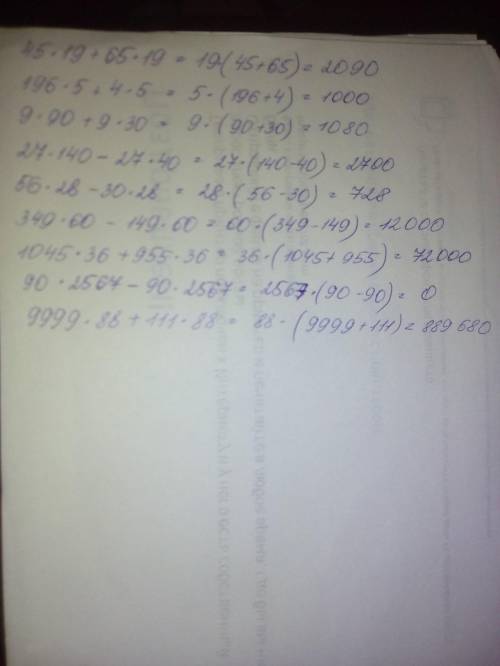 45·19+65·19 = 19·(45+65)=2090
196·5+4·5 = 5·(196+4)=1000
9·90+9·30 = 9·(90+30)=1080
27·140-27·40 = 27·(140-40)=2700
56·28-30·28 = 28·(56-30)=728
349·60-149·60=60·(349-149)=12000
1045·36+955·36=36·(1045+955)=72000
90·2567-90·2567=2567·(90-90)=0
9999·88+111·88= 88·(9999+111)=889680